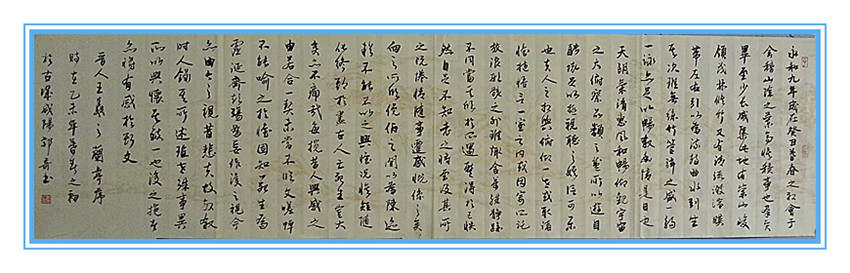 永和九年歲在癸丑暮春之初會于
會稽山陰之蘭亭脩稧事也羣賢
畢至少長咸集此地有崇山峻
領茂林脩竹又有清流激湍暎
帶左右引以為流觴曲水列坐
其次雖無絲竹管弦之盛一觴
一詠亦足以暢敘幽情是日也
天朗氣清惠風和暢仰觀宇宙
之大俯察品類之盛所以遊目
騁懷足以極視聽之娛信可樂
也夫人之相與俯仰一世或取諸
懷抱悟言一室之內或因寄所託
放浪形骸之外雖趣舍萬殊靜躁
不同當其欣於所遇蹔得於己快
然自足不知老之將至及其所
之既惓情隨事遷感慨係之矣
向之所欣俛仰之間以為陳迹
猶不能不以之興懷況脩短隨
化終期於盡古人云死生亦大
矣豈不痛哉每攬昔人興感之
由若合一契未嘗不臨文嗟悼
不能喻之於懷固知一死生為
虛誕齊彭殤為妄作後之視今
亦由今之視昔悲夫故列敘
時人錄其所述雖世殊事異
所以興懷其致一也後之攬者
亦將有感於斯文
晉人王羲之蘭亭序
時在乙未年春之初
於古咸陽郭書